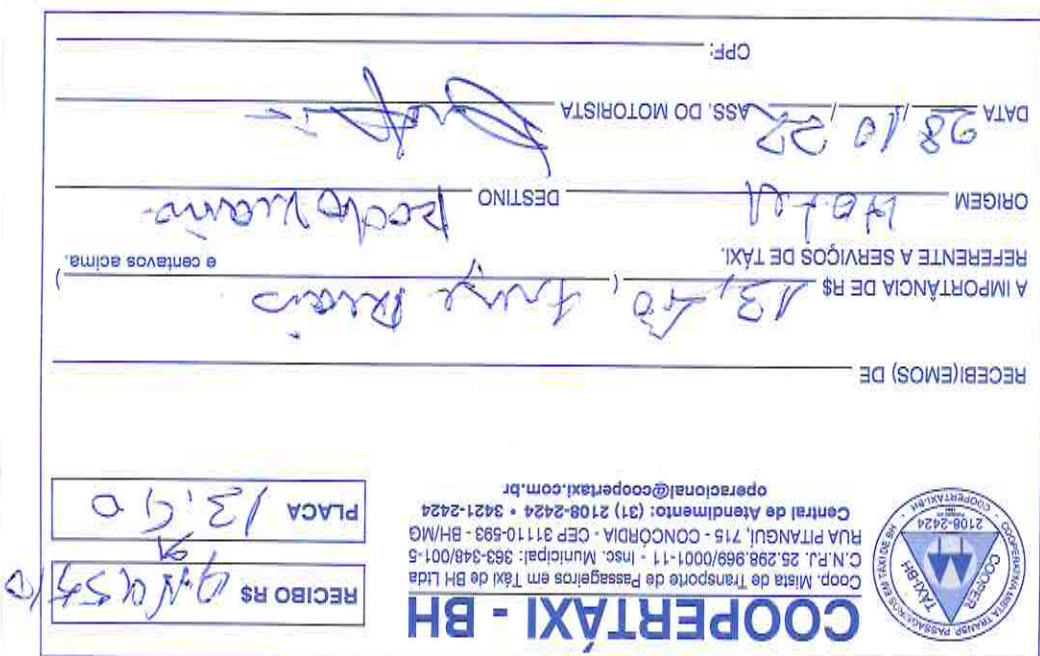 COOPERTÁXI - BH
Coop. Mista de Transporte de Passageiros em Táxi de BH Ltda
C.N.P.J. 25.298.969/0001-11 - Insc. Municipal: 363-348/001-5
RUA PITANGUÍ, 715 - CONCÓRDIA - CEP 31110-593 - BH/MG
Central de Atendimento: (31) 2108-2424 • 3421-2424
operacional@coopertaxi.com.br
COOPERATIVA MISTA TRANSP. PASSAGEIROS EM TÁXI DE BH
COOPERTÁXI-BH
COOPER
TÁXI-BH
2108-2424
RECIBO R$
PLACA 13,90
RECEBI(EMOS) DE
A IMPORTÂNCIA DE R$ 13, ( treze Reais e centavos acima. )
REFERENTE A SERVIÇOS DE TÁXI.
ORIGEM Hotel DESTINO Rodoviária
DATA 28/10/22 ASS. DO MOTORISTA
CPF: